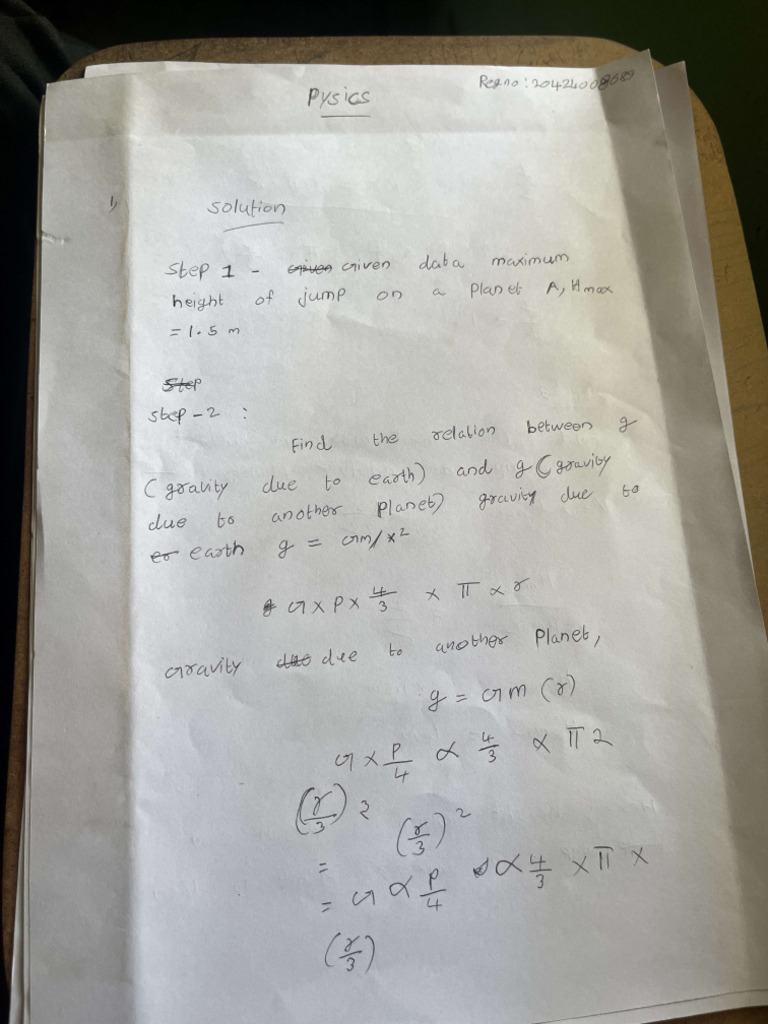 Pysics
Reg no: 20424008689
1,
Solution
Step 1 - Given Given data maximum
height of jump on a Planet A, Hmax
= 1.5 m
Step
step-2 :
Find the relation between g
(gravity due to earth) and g (gravity
due to another Planet) gravity due to
er earth g = Gm/x²
G × P × 4/3 × π × r
Gravity due due to another Planet,
g = Gm (r)
G × P/4 × 4/3 × π 2
(r/3) 3
(r/3)²
=
= G × P/4 × 4/3 × π ×
(r/3)